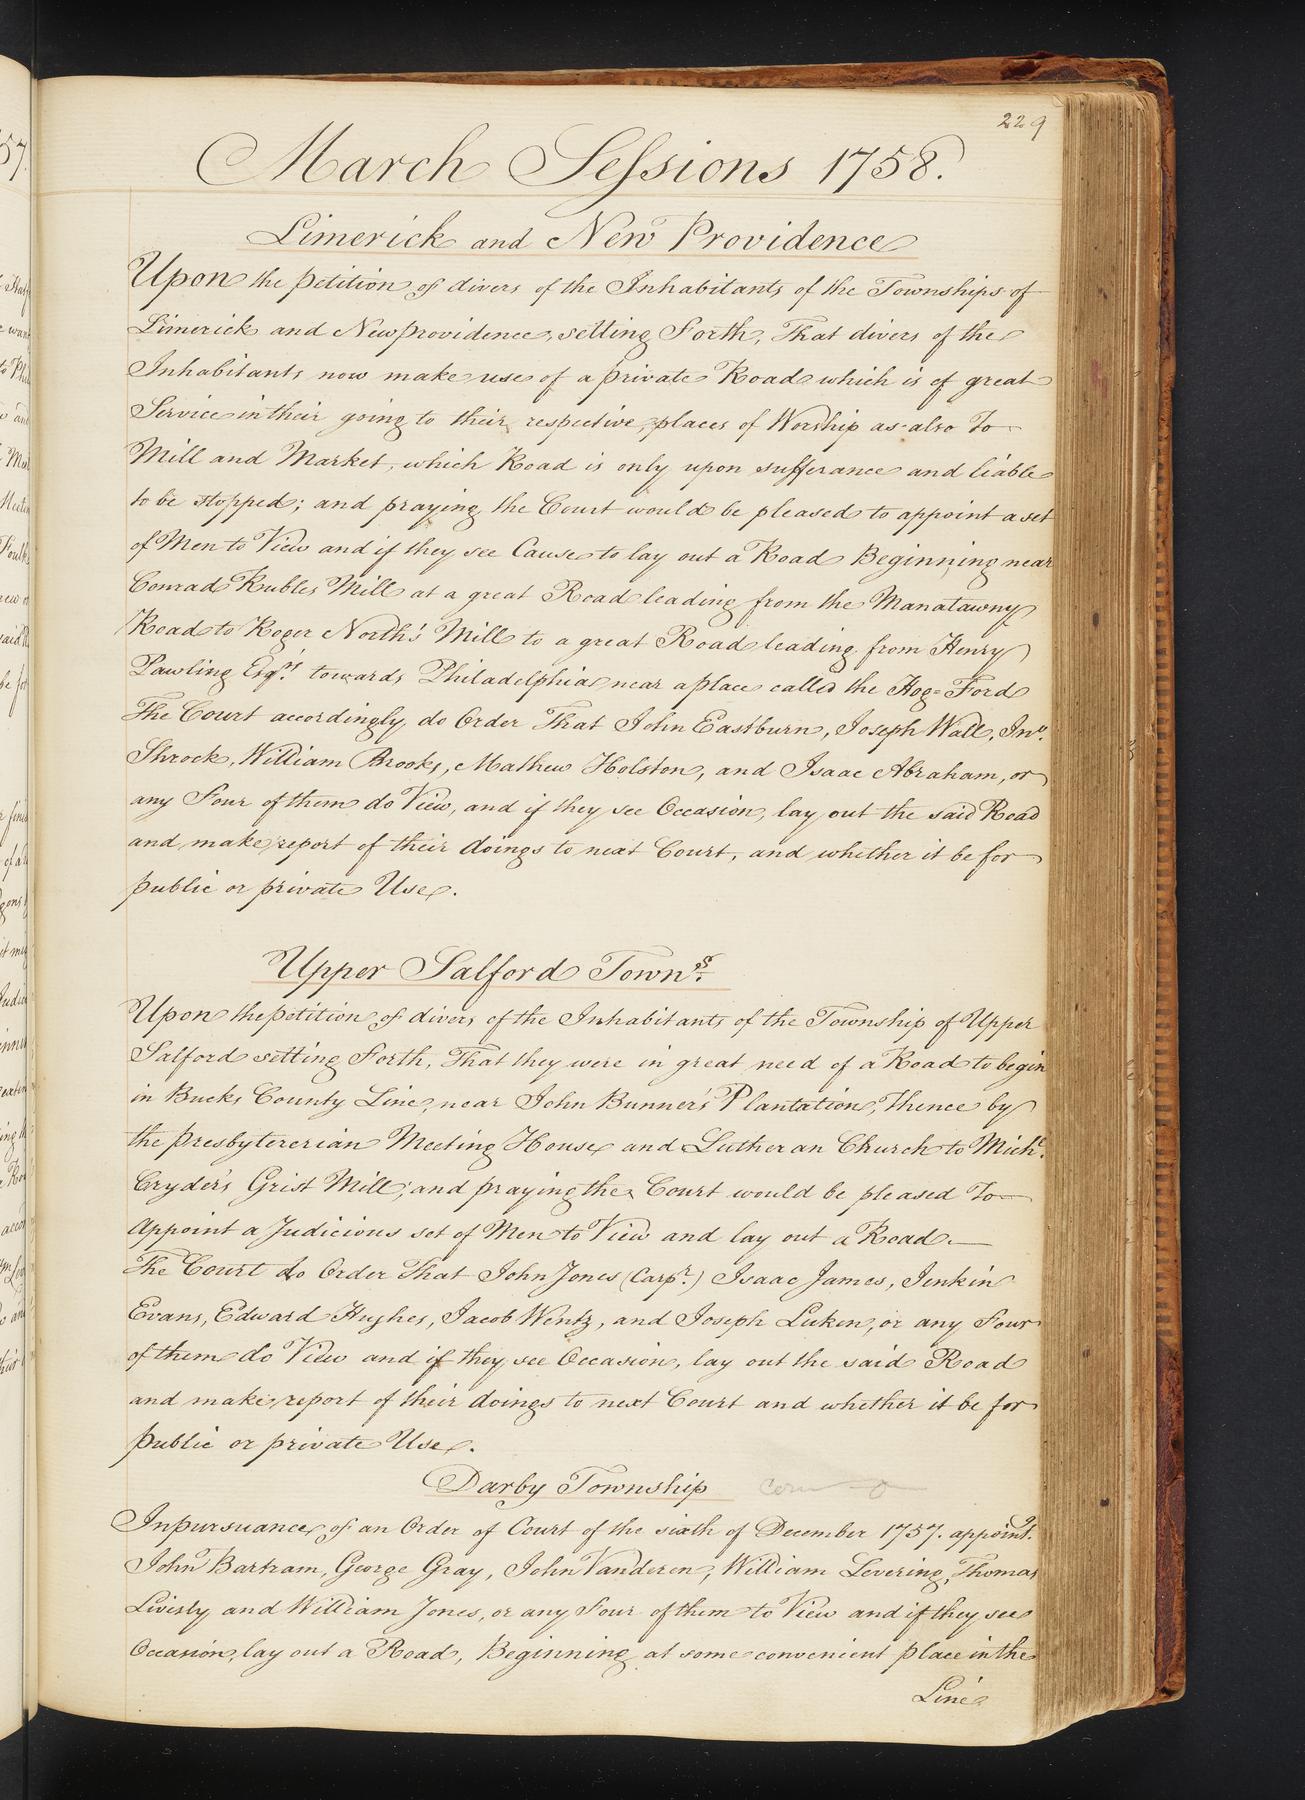 229
March Sessions 1758.
Limerick and New Providence
Upon the petition of divers of the Inhabitants of the Townships of
Limerick and Newprovidence, setting Forth, That divers of the
Inhabitants now make use of a private Road which is of great
Service in their going to their respective places of Worship as also To
Mill and Market, which Road is only upon sufferance and liable
to be stopped; and praying the Court would be pleased to appoint a set
of Men to View and if they see Cause to lay out a Road Beginning near
Conrad Rubles Mill at a great Road leading from the Manatawny
Road to Roger North's Mill to a great Road leading from Henry
Pawling Esqrs. towards Philadelphia near a place called the Hog=Ford
The Court accordingly do Order That John Eastburn, Joseph Wall, Jno.
Shrock, William Brooks, Mathew Holston, and Isaac Abraham, or
any Four of them do View, and if they see Occasion, lay out the said Road
and make report of their doings to next Court, and whether it be for
public or private Use.
Upper Salford Towns.
Upon the petition of divers of the Inhabitants of the Township of Upper
Salford setting Forth, That they were in great need of a Road to begin
in Bucks County Line, near John Bunner's Plantation, Thence by
the presbytererian Meeting House and Lutheran Church to Michl.
Cryder's Grist Mill; and praying the Court would be pleased To
Appoint a Judicious set of Men to View and lay out a Road.
The Court do Order That John Jones (Carpr.) Isaac James, Jenkin
Evans, Edward Hughes, Jacob Wentz, and Joseph Luken, or any Four
of them do View and if they see Occasion, lay out the said Road
and make report of their doings to next Court and whether it be for
public or private Use.
Darby Township
Inpursuance of an Order of Court of the sixth of December 1757. appoint.g
John Bartram, George Gray, John Vanderen, William Levering, Thomas
Livisly and William Jones, or any Four of them to View and if they see
Occasion, lay out a Road, Beginning at some convenient place in the
Line